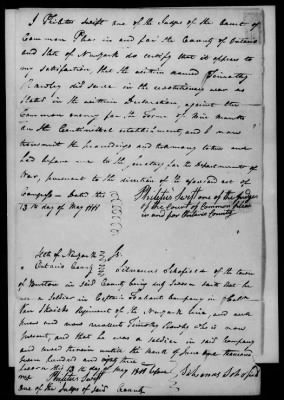 I Philetus Swift one of the Judges of the Court of
Common Pleas in and for the County of Ontario
and State of Newyork do certify that it appears to
my satisfaction, that the within named Timothy
did serve in the revolutionary war as
Stated in the within Declaration, against the
Common enemy for the Term of Nine months
on the Continental establishment, and I now
transmit the proceedings and testimony taken and
had before me to the Secretary for the Department of
War, pursuant to the direction of the aforesaid act of
Congress Dated this
13th day of May 1818
Philetus Swift one of the Judges
of the Court of Common Pleas
in and for Ontario County
State of Newyork
Ontario County Ss. Silvanus Schofield of the town
of in said County being duly Sworn saith that he
was a Soldier in Captain Company in
Van Regiment of the Newyork line, and well
knew and now recollects Timothy who is now
present, and that he was a Soldier in said Company
and there remain untill the month of June One thousand
Seven hundred and eighty three
Sworn this 13th day of May 1818 before
me Philetus Swift
one of the Judges of said County
Silvanus Schofield